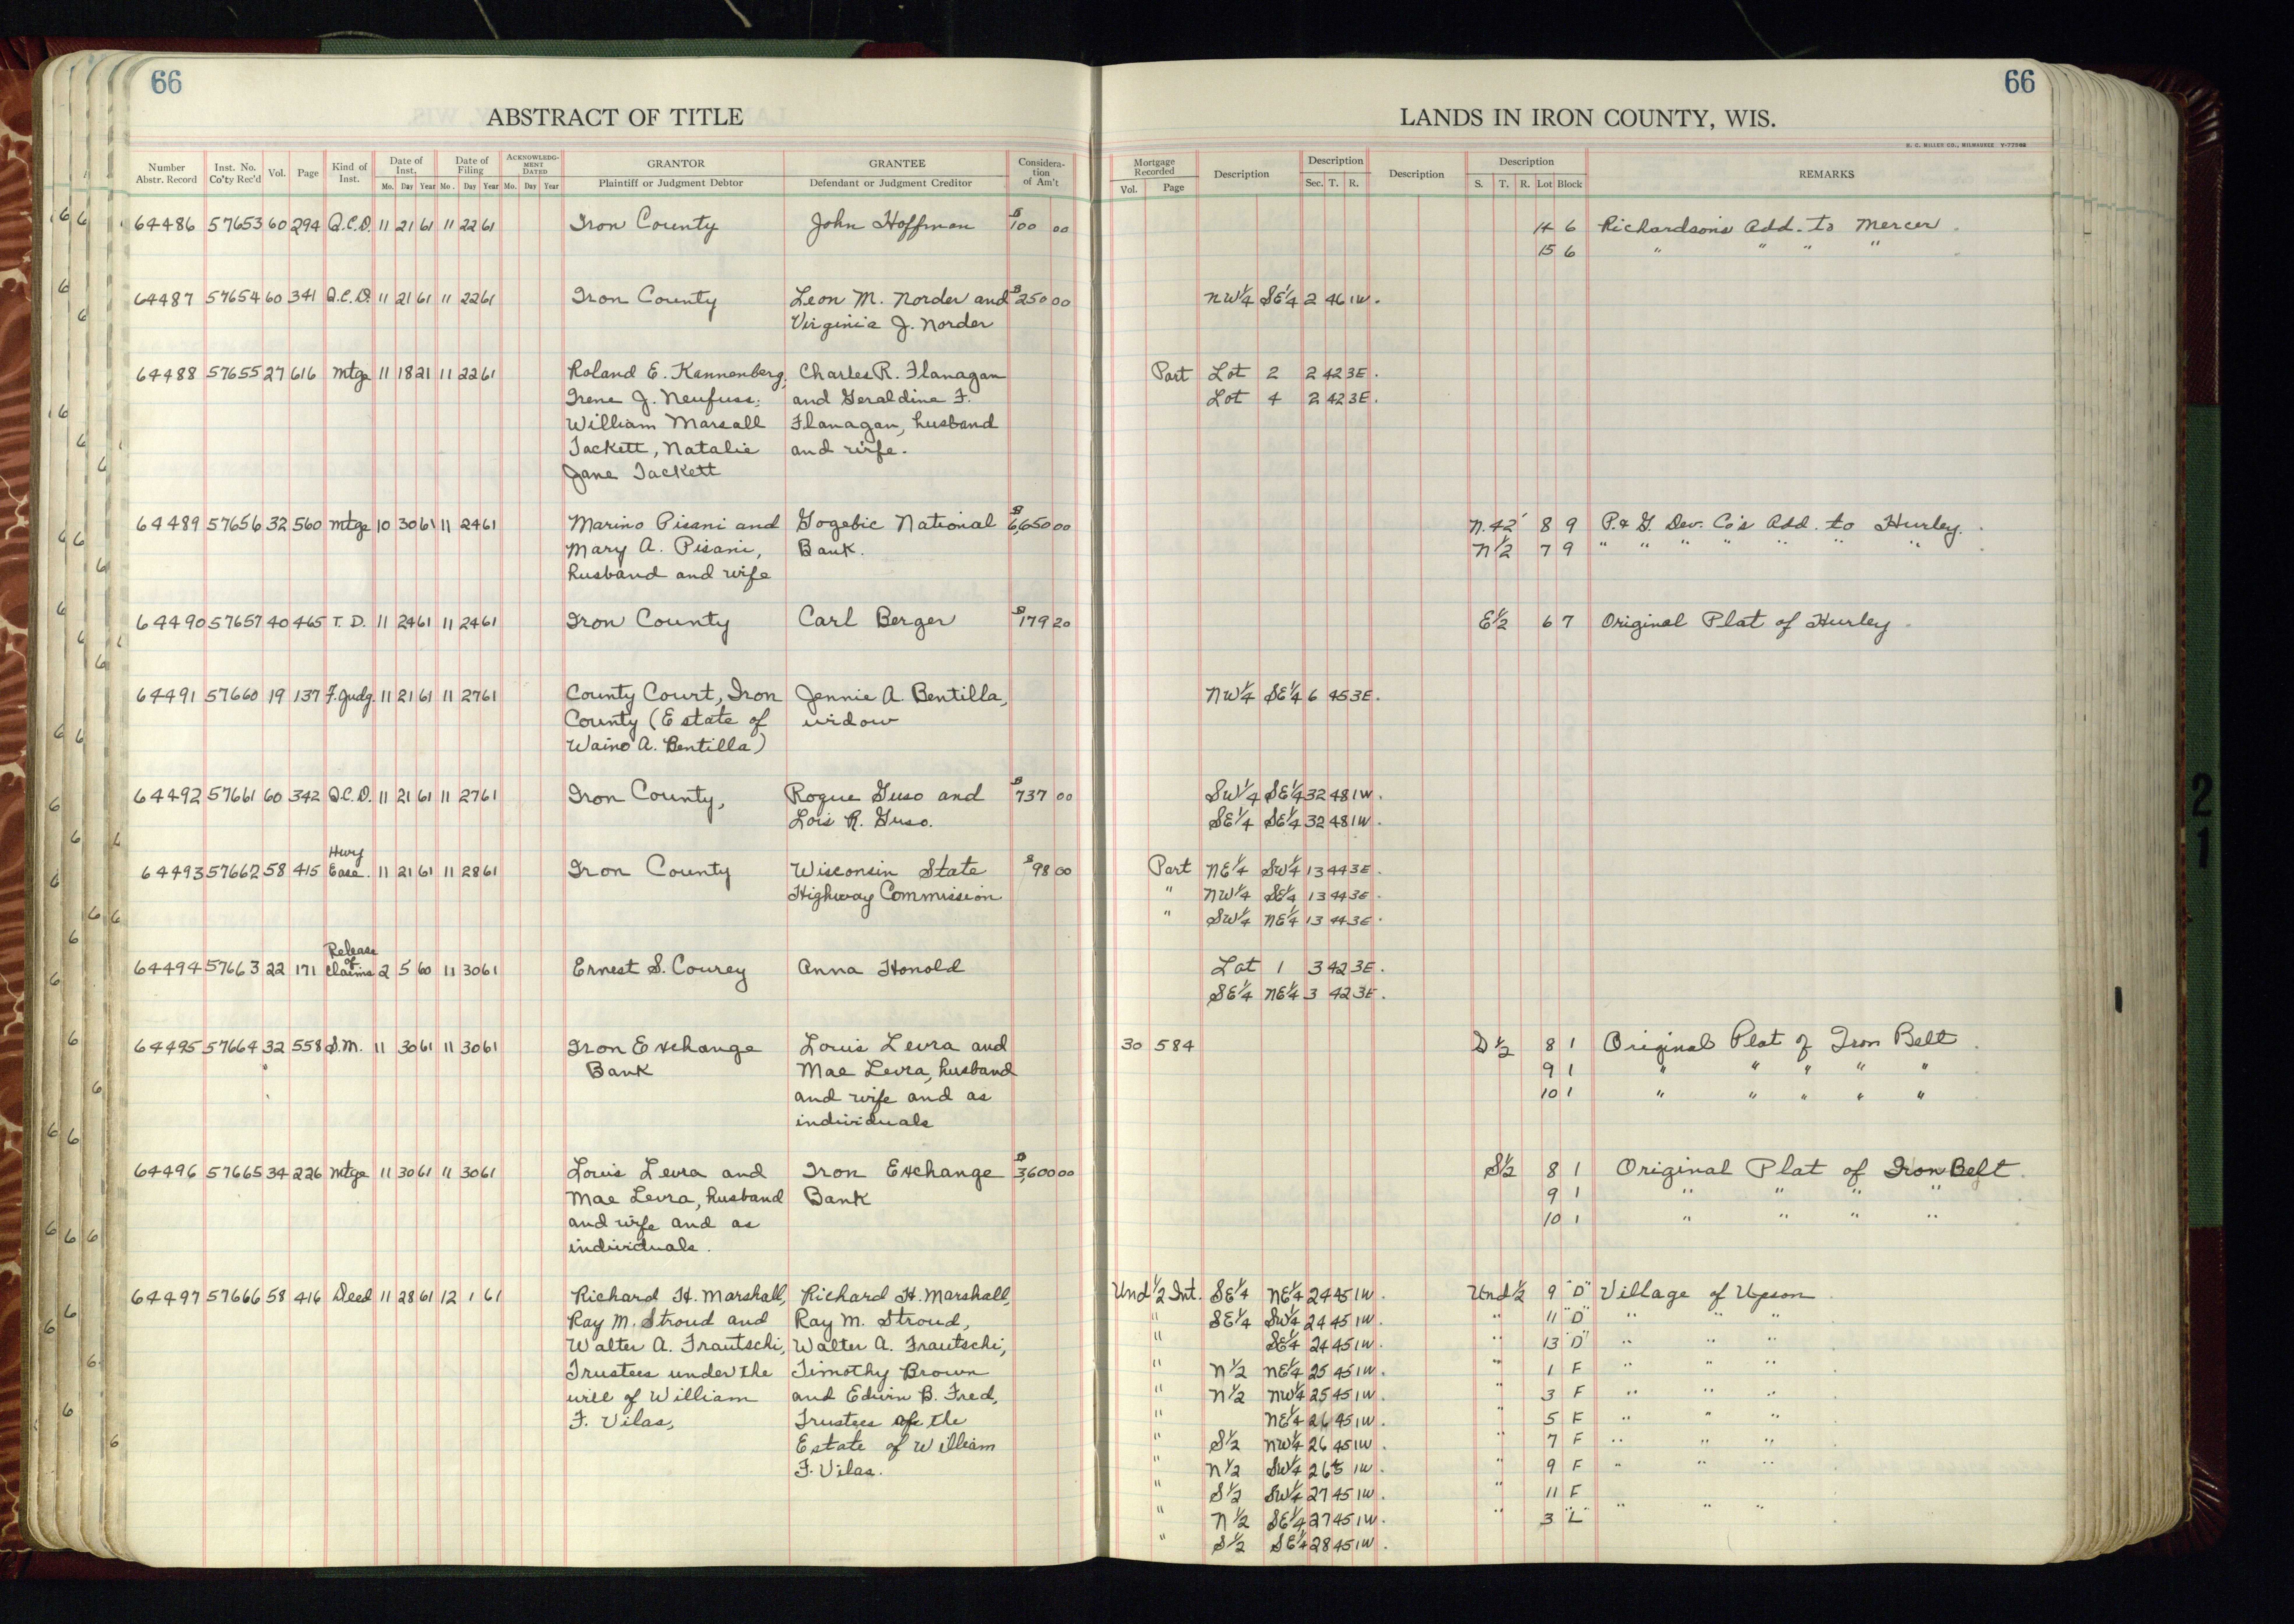 66
66
ABSTRACT OF TITLE
LANDS IN IRON COUNTY, WIS.
H. C. MILLER CO., MILWAUKEE
Number Abstr. Record | Inst. No. Co'ty Rec'd | Vol. | Page | Kind of Inst. | Date of Inst. Mo. Day Year | Date of Filing Mo. Day Year | ACKNOWLEDGMENT DATED Mo. Day Year | GRANTOR Plaintiff or Judgment Debtor | GRANTEE Defendant or Judgment Creditor | Consideration of Am't | Mortgage Recorded Vol. Page | Description | Description Sec. T. R. | Description | Description S. T. R. Lot Block | REMARKS
64486 57653 60 294 Q.C.D. 11 21 61 11 22 61 Iron County John Hoffman $100 00 14 6 Richardson's Add. to Mercer
15 6 " " " "
64487 57654 60 341 Q.C.D. 11 21 61 11 22 61 Iron County Leon M. Norder and $250 00 NW¼ SE¼ 2 46 1W.
Virginia J. Norder
64488 57655 27 616 Mtge 11 18 21 11 22 61 Roland E. Kannenberg, Charles R. Flanagan Part Lot 2 2 42 3E.
Irene J. Neufuss, and Geraldine F. Lot 4 2 42 3E.
William Marsall Flanagan, husband
Tackett, Natalie and wife.
Jane Tackett
64489 57656 32 560 Mtge 10 30 61 11 24 61 Marino Pisani and Gogebic National $6,650 00 N. 42' 8 9 P. & G. Dev. Co's Add. to Hurley.
Mary A. Pisani, Bank. N½ 7 9 " " " " " " "
husband and wife
64490 57657 40 465 T. D. 11 24 61 11 24 61 Iron County Carl Berger $179 20 E½ 6 7 Original Plat of Hurley
64491 57660 19 137 F. Judg. 11 21 61 11 27 61 County Court, Iron Jennie A. Bentilla, NW¼ SE¼ 6 45 3E.
County (Estate of widow
Waino A. Bentilla)
64492 57661 60 342 Q.C.D. 11 21 61 11 27 61 Iron County, Rogue Guso and $737 00 SW¼ SE¼ 32 48 1W.
Lois R. Guso. SE¼ SE¼ 32 48 1W.
64493 57662 58 415 Hwy Ease. 11 21 61 11 28 61 Iron County Wisconsin State $98 00 Part NE¼ SW¼ 13 44 3E.
Highway Commission " NW¼ SE¼ 13 44 3E.
" SW¼ NE¼ 13 44 3E.
64494 57663 22 171 Release of Claims 2 5 60 11 30 61 Ernest S. Courey Anna Honold Lot 1 3 42 3E.
SE¼ NE¼ 3 42 3E.
64495 57664 32 558 S.M. 11 30 61 11 30 61 Iron Exchange Louis Levra and 30 584 S½ 8 1 Original Plat of Iron Belt
Bank Mae Levra, husband 9 1 " " " " "
and wife and as 10 1 " " " " "
individuals
64496 57665 34 226 Mtge 11 30 61 11 30 61 Louis Levra and Iron Exchange $3,600 00 S½ 8 1 Original Plat of Iron Belt
Mae Levra, husband Bank 9 1 " " " "
and wife and as 10 1 " " " "
individuals.
64497 57666 58 416 Deed 11 28 61 12 1 61 Richard H. Marshall, Richard H. Marshall, Und ½ Int. SE¼ NE¼ 24 45 1W. Und ½ 9 "D" Village of Upson
Ray M. Stroud and Ray M. Stroud, " SE¼ SW¼ 24 45 1W. " 11 "D" " " "
Walter A. Frautschi, Walter A. Frautschi, " SE¼ 24 45 1W. " 13 "D" " " "
Trustees under the Timothy Brown " N½ NE¼ 25 45 1W. " 1 F " " "
will of William and Edwin B. Fred, " N½ NW¼ 25 45 1W. " 3 F " " "
F. Vilas, Trustees of the " NE¼ 26 45 1W. " 5 F " " "
Estate of William " S½ NW¼ 26 45 1W. " 7 F " " "
F. Vilas. " N½ SW¼ 26 45 1W. " 9 F " " "
" S½ SW¼ 27 45 1W. " 11 F " " "
" N½ SE¼ 27 45 1W. " 3 "L"
" S½ SE¼ 28 45 1W.
2
1